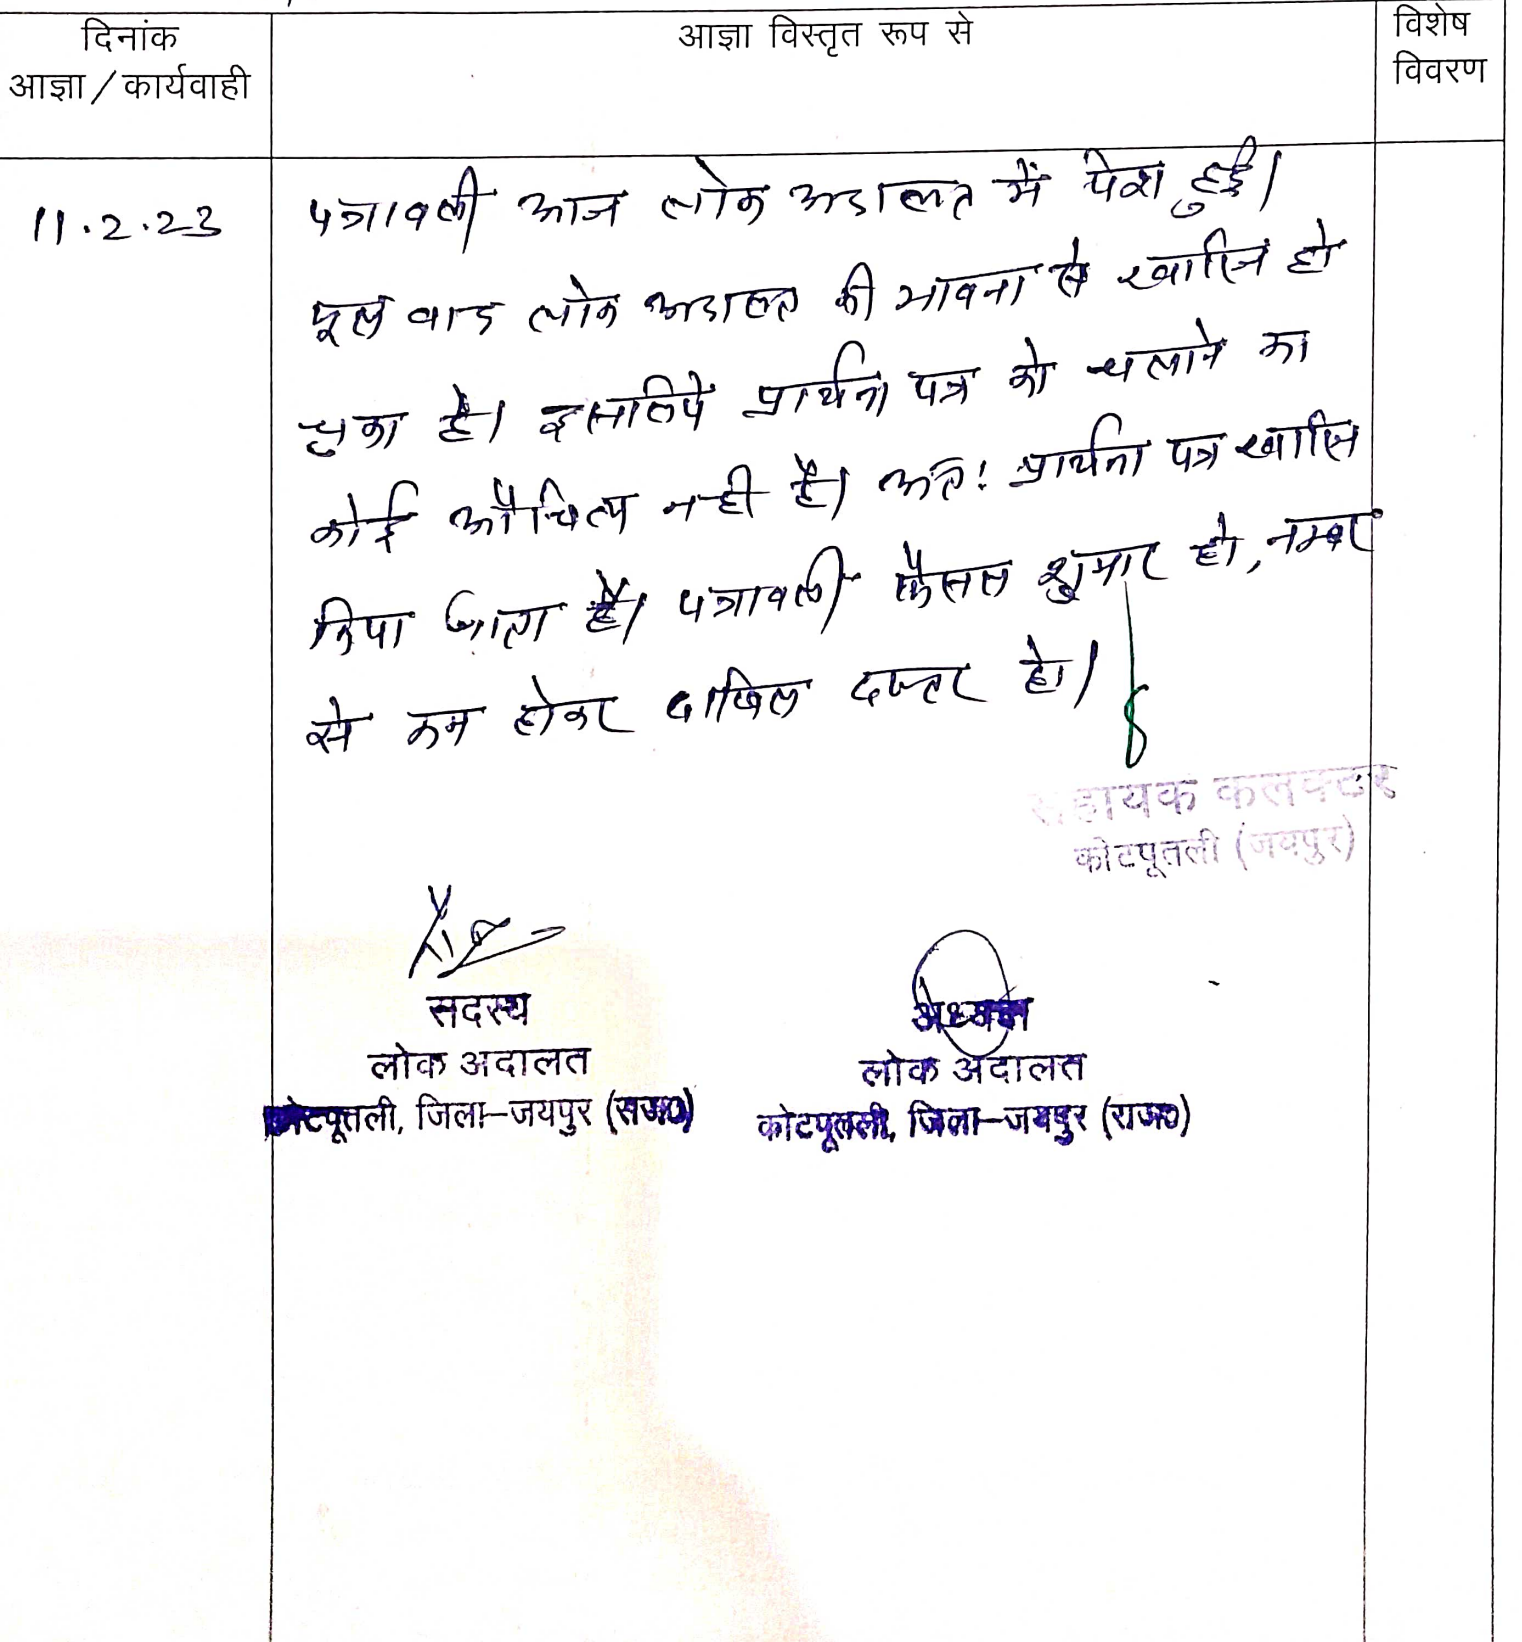 दिनांक
आज्ञा / कार्यवाही
आज्ञा विस्तृत रूप से
विशेष
विवरण
11.2.23
पत्रावली आज लोक अदालत में पेश हुई।
मूल वाद लोक अदालत की भावना से खारिज हो
चुका है। इसलिये प्रार्थना पत्र को चलाने का
कोई औचित्य नही है। अतः प्रार्थना पत्र खारिज
किया जाता है। पत्रावली फैसल शुमार हो, नम्बर
से कम होकर दाखिल दफ्तर हो।
सहायक कलक्टर
कोटपूतली (जयपुर)
सदस्य
लोक अदालत
कोटपूतली, जिला-जयपुर (राज०)
अध्यक्ष
लोक अदालत
कोटपूतली, जिला-जयपुर (राज०)